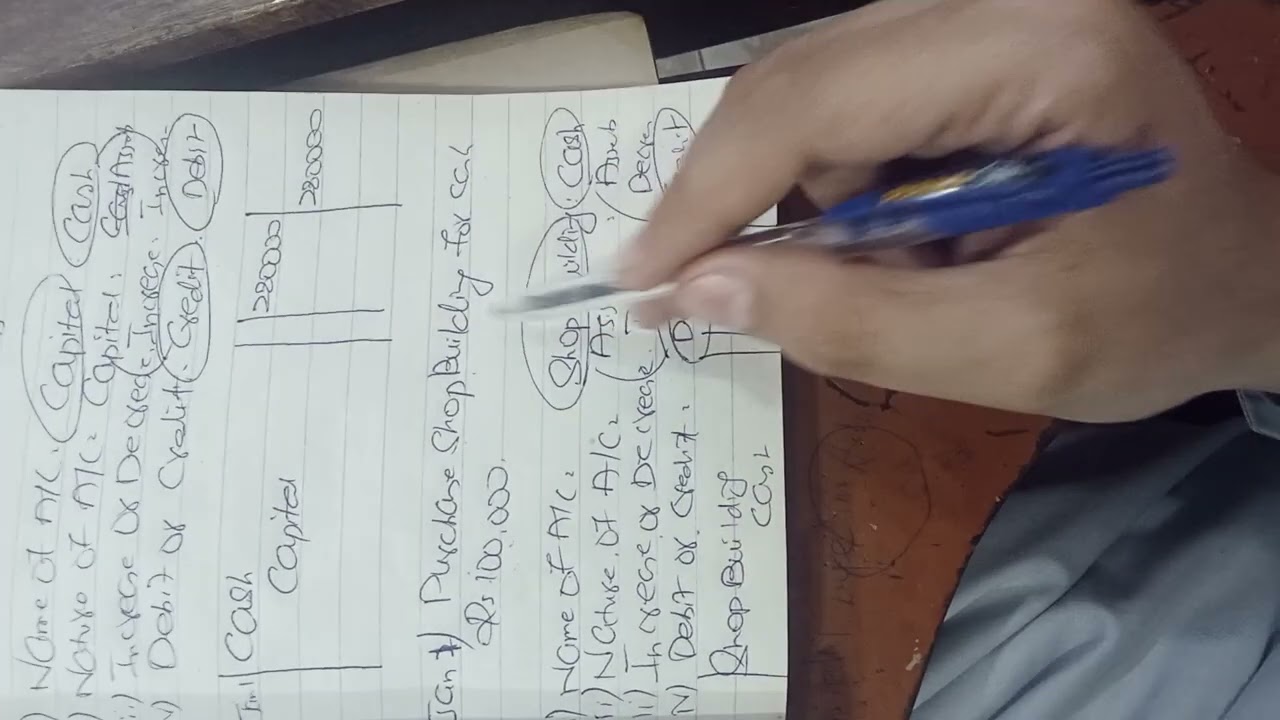 Name of A/C. Capital Cash
Nature of A/C: Capital: Assets
ii) Increase Or Decrease. Increase. Increa
iv) Debit or Credit. Credit. Debit
Jan 1 Cash 280000
Capital 280000
Jan 7) Purchase Shop Building for Cash
Rs. 100,000.
i) Name of A/C: Shop ilding. Cash
ii) Nature of A/C: As Assets
ii) Increase or Decrease. Decrea
iv) Debit or Credit. D dit
Shop Building
Cash